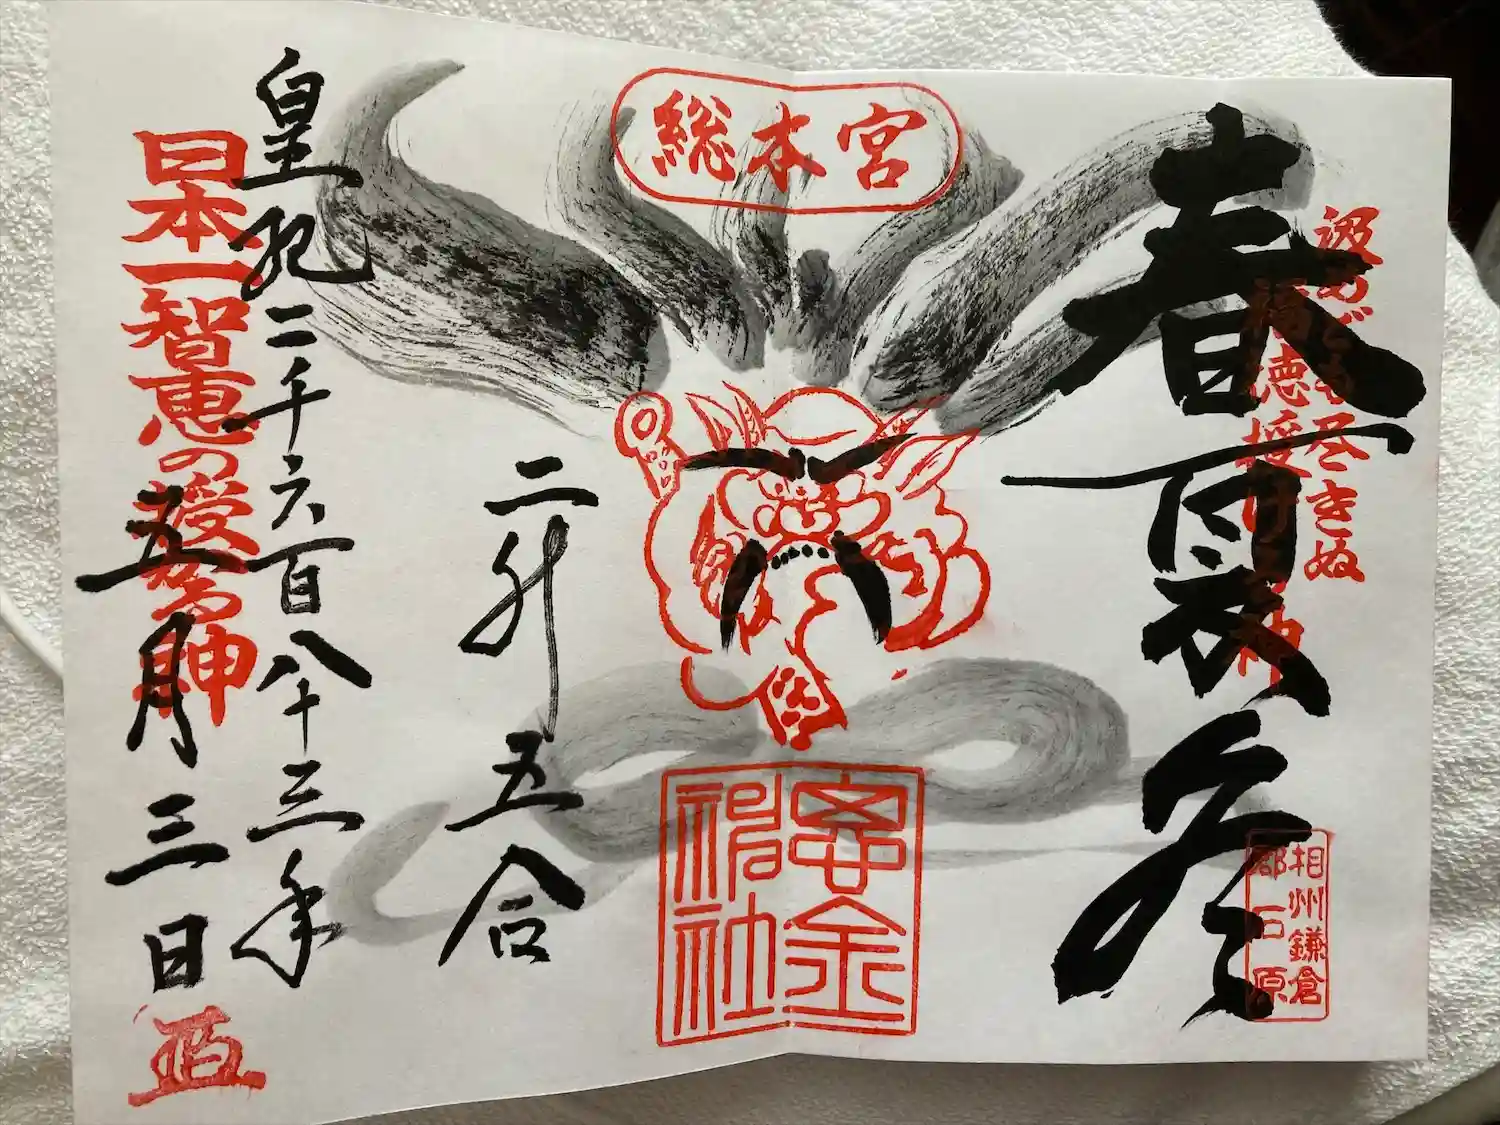 汲めども尽きぬ
福徳授ける神
春夏冬
相州鎌倉
郡石原
総本宮
二升五合
皇紀二千六百八十三年
五月三日
日本一智恵の授かる神